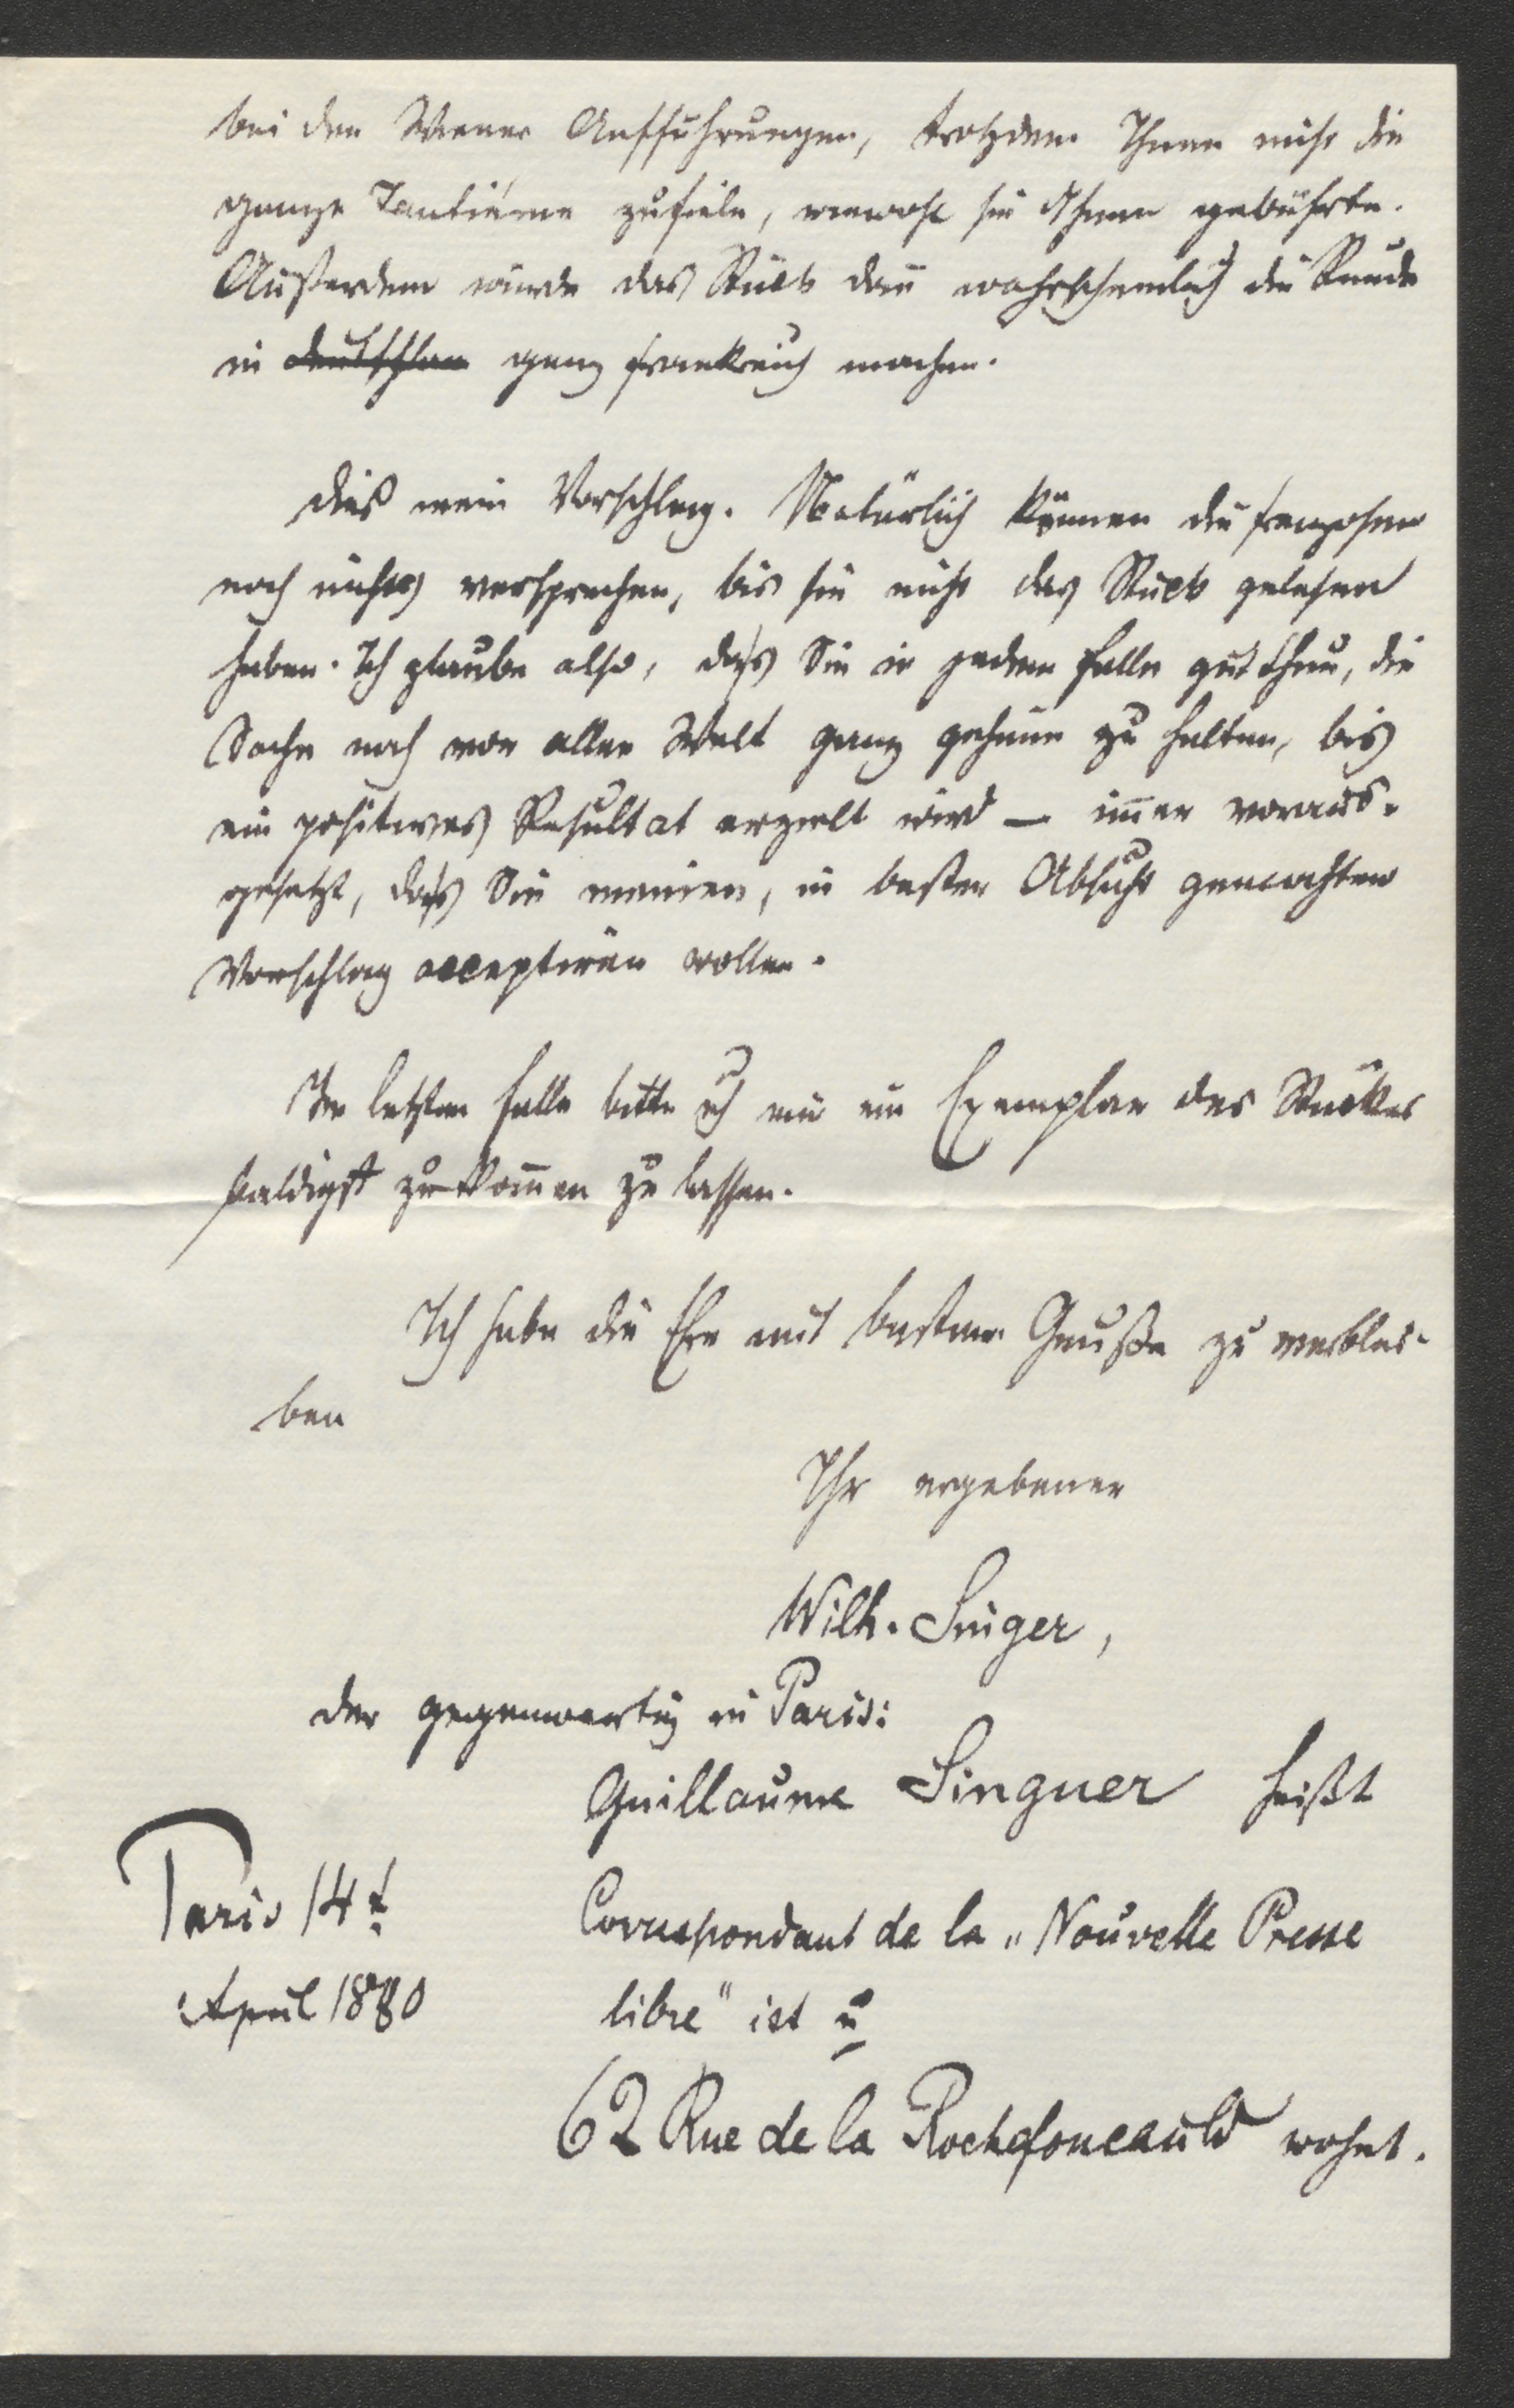 bei den Wiener Aufführungen, trotzdem Ihnen nicht die
ganze Tantième zufiele, wiewohl sie Ihnen gebührte.
Außerdem würde das Stück dan̄ wahrscheinlich die Runde
in deutschlan ganz frankreich machen.
Dies mein Vorschlag. Natürlich können die franzosen
noch nichts versprechen, bis sie nicht das Stück gelesen
haben. Ich glaube also, dass Sie in jedem falle gut thun, die
Sache noch vor aller Welt ganz geheim zu halten, bis
ein positives Resultat erzielt wird – im̄er voraus-
gesetzt, dass Sie meinen, in bester Absicht gemachten
Vorschlag acceptiren wollen.
Im letzten falle bitte ich mir ein Exemplar des Stückes
baldigst zukom̄en zu lassen.
Ich habe die Ehre mit bestem Gruße zu verblei-
ben
Ihr ergebener
Wilh. Singer,
der gegenwärtig in Paris:
Guillaume Singuer heißt
Paris 14t
April 1880
Correspondant de la „Nouvelle Presse
libre" ist u
62 Rue de la Rochefoucauld wohnt.